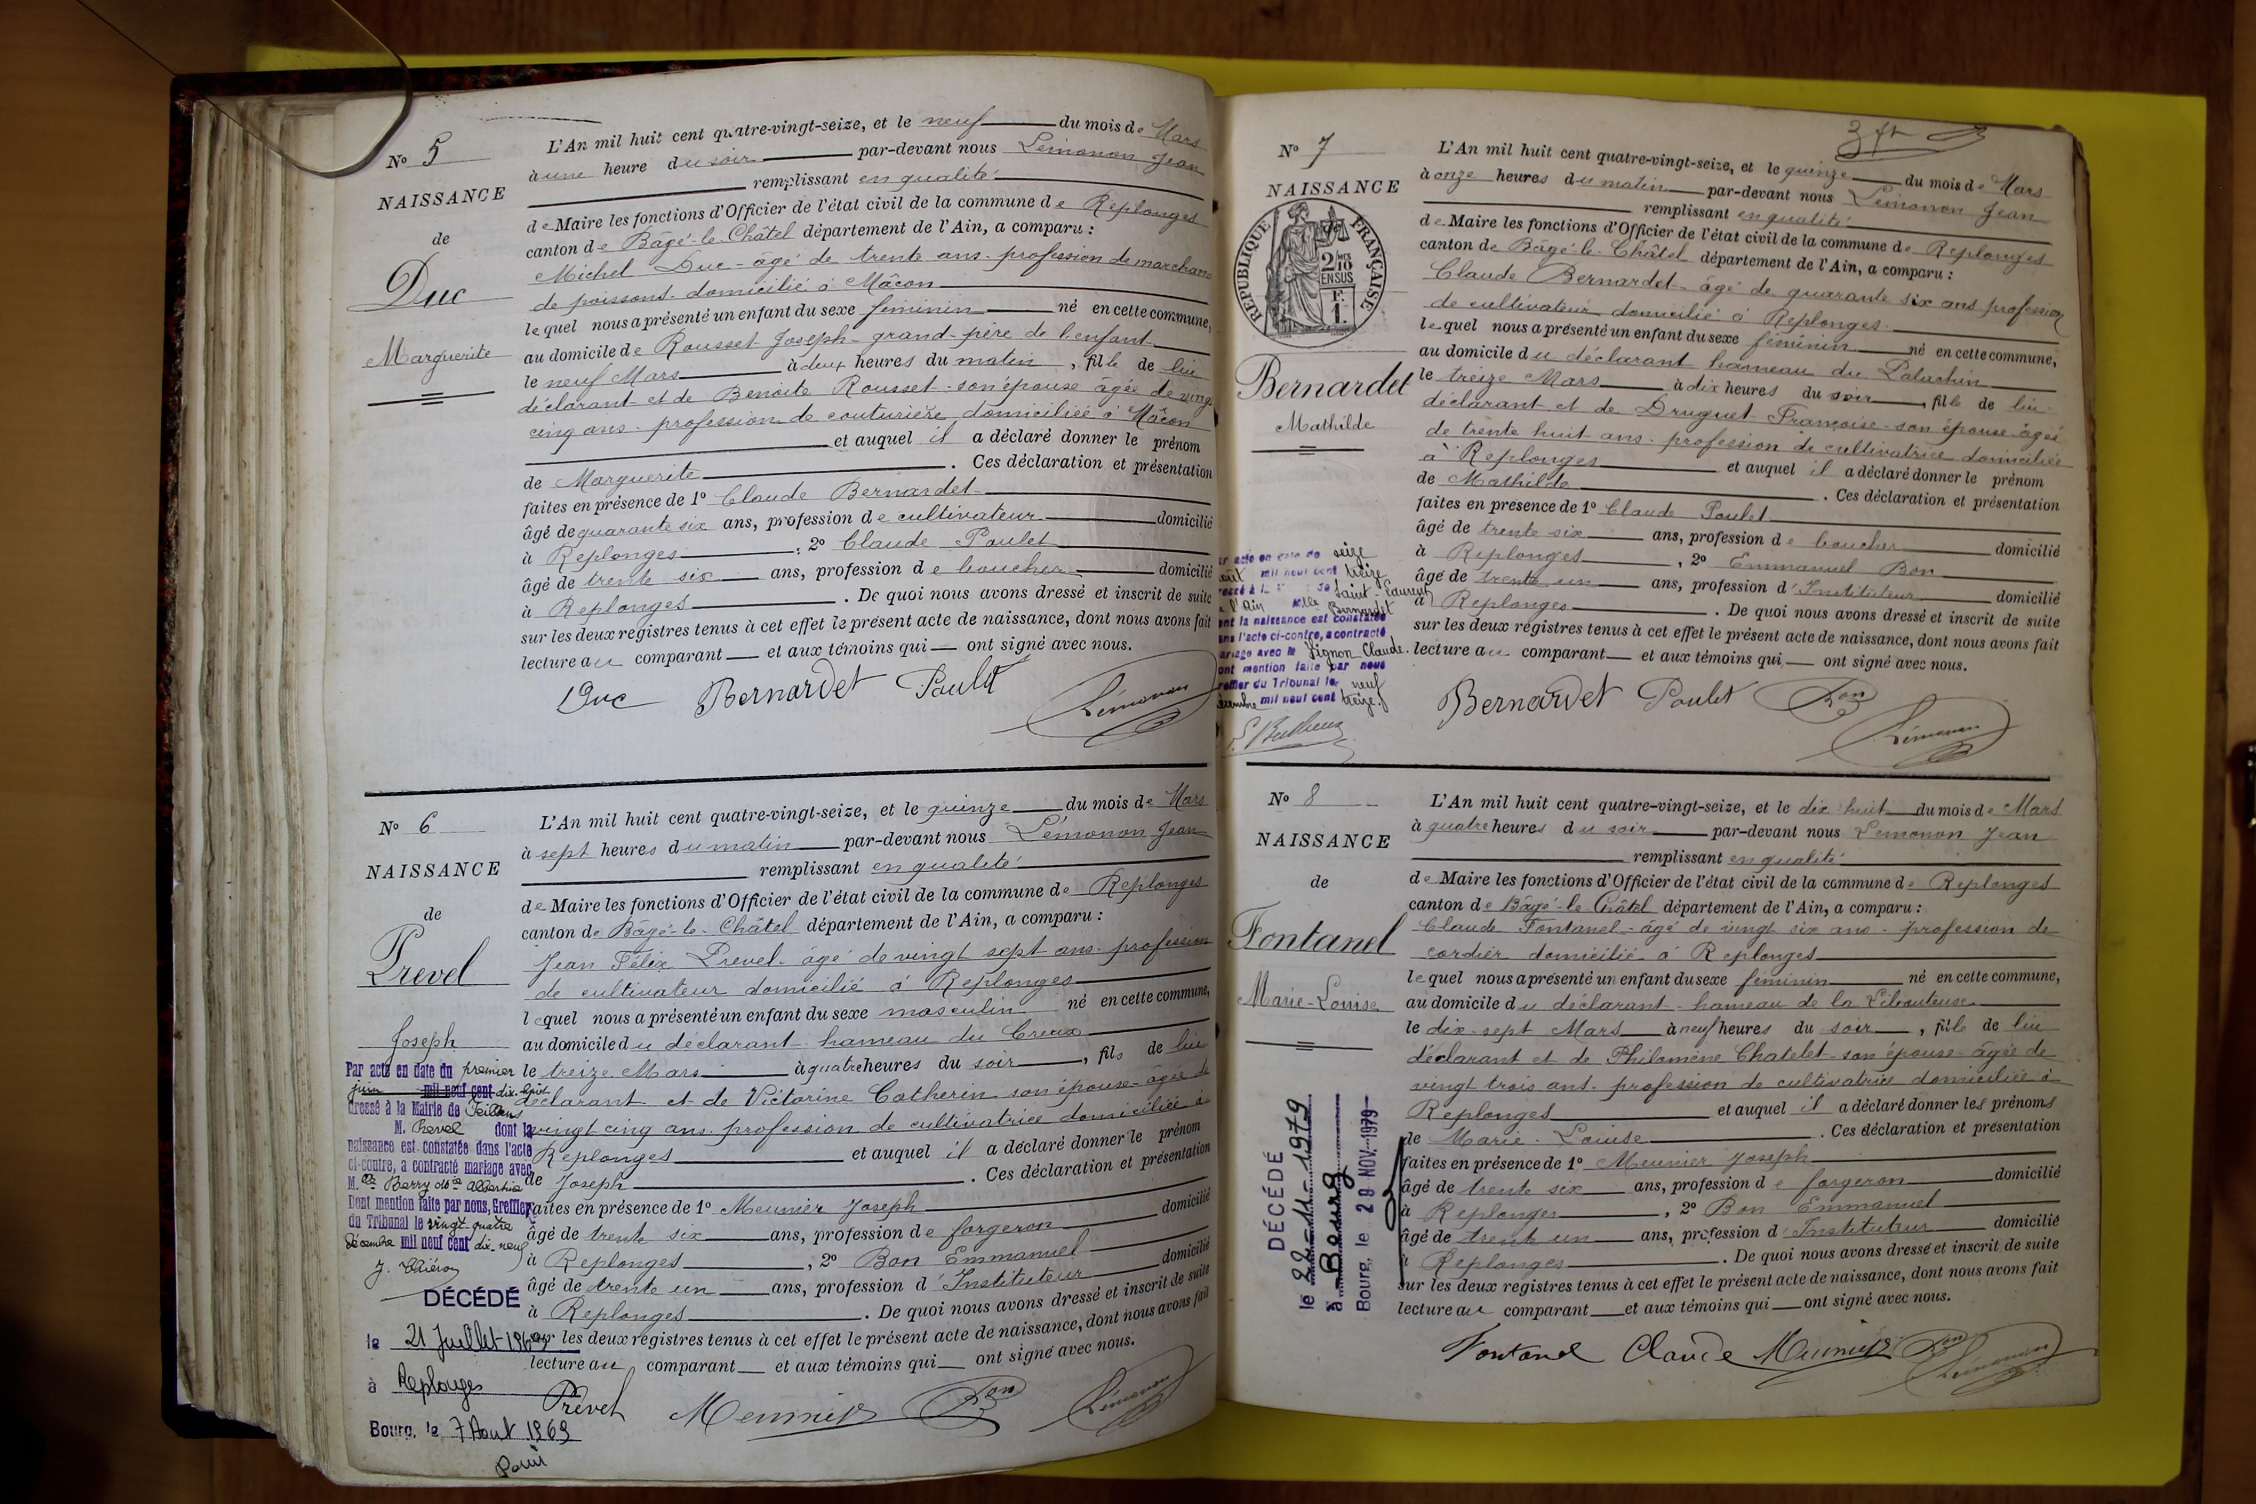 N° 5
NAISSANCE
de
Duc
Marguerite
L'An mil huit cent quatre-vingt-seize, et le neuf du mois de Mars
à une heure du soir par-devant nous Lémonon Jean
remplissant en qualité
de Maire les fonctions d'Officier de l'état civil de la commune de Replonges
canton de Bâgé-le-Châtel département de l'Ain, a comparu :
Michel Duc - âgé de trente ans - profession de marchand
de poissons - domicilié à Mâcon
lequel nous a présenté un enfant du sexe féminin né en cette commune,
au domicile de Rousset Joseph - grand-père de l'enfant
le neuf Mars à deux heures du matin, fille de lui
déclarant et de Benoite Rousset - son épouse âgée de vingt
cinq ans - profession de couturière domiciliée à Mâcon
et auquel il a déclaré donner le prénom
de Marguerite. Ces déclaration et présentation
faites en présence de 1° Claude Bernardet
âgé de quarante six ans, profession de cultivateur domicilié
à Replonges, 2° Claude Poulet
âgé de trente six ans, profession de boucher domicilié
à Replonges. De quoi nous avons dressé et inscrit de suite
sur les deux registres tenus à cet effet le présent acte de naissance, dont nous avons fait
lecture au comparant et aux témoins qui ont signé avec nous.
Duc Bernardet Poulet
Lémonon
N° 6
NAISSANCE
de
Prevel
Joseph
L'An mil huit cent quatre-vingt-seize, et le quinze du mois de Mars
à sept heures du matin par-devant nous Lémonon Jean
remplissant en qualité
de Maire les fonctions d'Officier de l'état civil de la commune de Replonges
canton de Bâgé-le-Châtel département de l'Ain, a comparu :
Jean Félix Prevel - âgé de vingt sept ans - profession
de cultivateur domicilié à Replonges
lequel nous a présenté un enfant du sexe masculin né en cette commune,
au domicile du déclarant - hameau du Creux
le treize Mars à quatre heures du soir, fils de lui
déclarant et de Victorine Catherin son épouse - âgée de
vingt cinq ans - profession de cultivatrice domiciliée à
Replonges et auquel il a déclaré donner le prénom
de Joseph. Ces déclaration et présentation
faites en présence de 1° Meunier Joseph
âgé de trente six ans, profession de forgeron domicilié
à Replonges, 2° Bon Emmanuel
âgé de trente un ans, profession d'Instituteur domicilié
à Replonges. De quoi nous avons dressé et inscrit de suite
sur les deux registres tenus à cet effet le présent acte de naissance, dont nous avons fait
lecture au comparant et aux témoins qui ont signé avec nous.
Prevel Meunier Bon
Lémonon
Par acte en date du premier
juin mil neuf cent dix-huit
dressé à la Mairie de
M. Prevel dont la
naissance est constatée dans l'acte
ci-contre, a contracté mariage avec
M. Barry
Dont mention faite par nous, Greffier
du Tribunal le vingt-quatre
décembre mil neuf cent dix-neuf
DÉCÉDÉ
le 21 Juillet 1969
à Replonges
Bourg, le 7 Aout 1969
3 ft
N° 7
NAISSANCE
RÉPUBLIQUE FRANÇAISE
2/10
EN SUS
F.
1.
Bernardet
Mathilde
L'An mil huit cent quatre-vingt-seize, et le quinze du mois de Mars
à onze heures du matin par-devant nous Lémonon Jean
remplissant en qualité
de Maire les fonctions d'Officier de l'état civil de la commune de Replonges
canton de Bâgé-le-Châtel département de l'Ain, a comparu :
Claude Bernardet - âgé de quarante six ans profession
de cultivateur domicilié à Replonges
lequel nous a présenté un enfant du sexe féminin né en cette commune,
au domicile du déclarant hameau du Palachin
le treize Mars à dix heures du soir, fille de lui
déclarant et de Druguet Françoise son épouse âgée
de trente huit ans - profession de cultivatrice domiciliée
à Replonges et auquel il a déclaré donner le prénom
de Mathilde. Ces déclaration et présentation
faites en présence de 1° Claude Poulet
âgé de trente six ans, profession de boucher domicilié
à Replonges, 2° Emmanuel Bon
âgé de trente un ans, profession d'Instituteur domicilié
à Replonges. De quoi nous avons dressé et inscrit de suite
sur les deux registres tenus à cet effet le présent acte de naissance, dont nous avons fait
lecture au comparant et aux témoins qui ont signé avec nous.
Bernardet Poulet Bon
Lémonon
acte en date du seize
mil neuf cent treize
Saint-Laurent
l'Ain Mlle Bernardet
dont la naissance est constatée
dans l'acte ci-contre, a contracté
mariage avec M Signon Claude.
dont mention faite par nous
greffier du Tribunal le neuf
mil neuf cent treize
N° 8
NAISSANCE
de
Fontanel
Marie-Louise
L'An mil huit cent quatre-vingt-seize, et le dix huit du mois de Mars
à quatre heures du soir par-devant nous Lémonon Jean
remplissant en qualité
de Maire les fonctions d'Officier de l'état civil de la commune de Replonges
canton de Bâgé-le-Châtel département de l'Ain, a comparu :
Claude Fontanel - âgé de vingt six ans - profession de
cordier domicilié à Replonges
lequel nous a présenté un enfant du sexe féminin né en cette commune,
au domicile du déclarant - hameau de la
le dix-sept Mars à neuf heures du soir, fille de lui
déclarant et de Philomène Chatelet - son épouse - âgée de
vingt trois ans - profession de cultivatrice domiciliée à
Replonges et auquel il a déclaré donner les prénoms
de Marie-Louise. Ces déclaration et présentation
faites en présence de 1° Meunier Joseph
âgé de trente six ans, profession de forgeron domicilié
à Replonges, 2° Bon Emmanuel
âgé de trente un ans, profession d'Instituteur domicilié
à Replonges. De quoi nous avons dressé et inscrit de suite
sur les deux registres tenus à cet effet le présent acte de naissance, dont nous avons fait
lecture au comparant et aux témoins qui ont signé avec nous.
Fontanel Claude Meunier Bon
Lémonon
DÉCÉDÉ
le 22-11-1979
à Bourg
Bourg, le 28 NOV. 1979